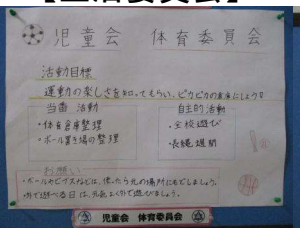 児童会 体育委員会
活動目標
運動の楽しさを知ってもらい、ピカピカの倉庫にしよう!
当番 活動
・体育倉庫整理
・ボール置き場の整理
自主的活動
・全校遊び
・長縄週間
お願い
・ボールやビブスなどは、使ったら元の場所にもどしましょう。
・外で遊べる日は、元気よく外で遊びましょう。
児童会 体育委員会